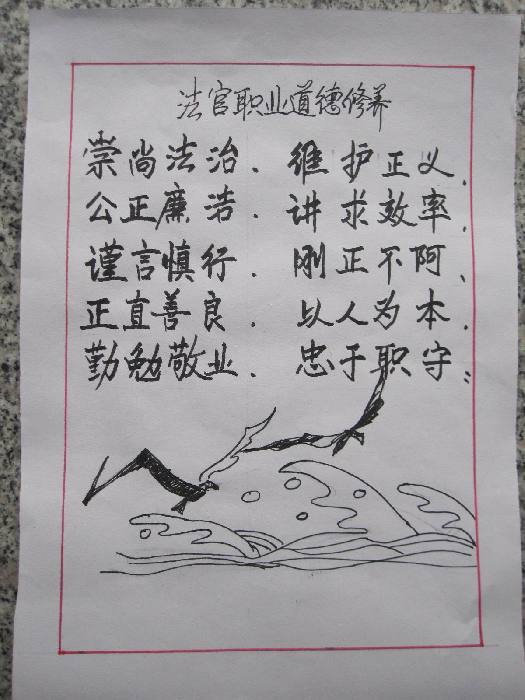 法官职业道德修养
崇尚法治、维护正义、
公正廉洁、讲求效率、
谨言慎行、刚正不阿、
正直善良、以人为本、
勤勉敬业、忠于职守；